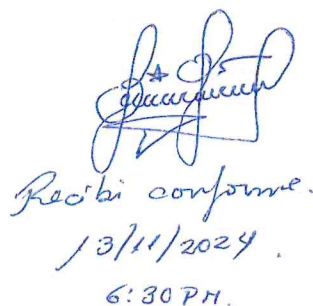 Recibi conforme.
13/11/2024.
6:30 PM.